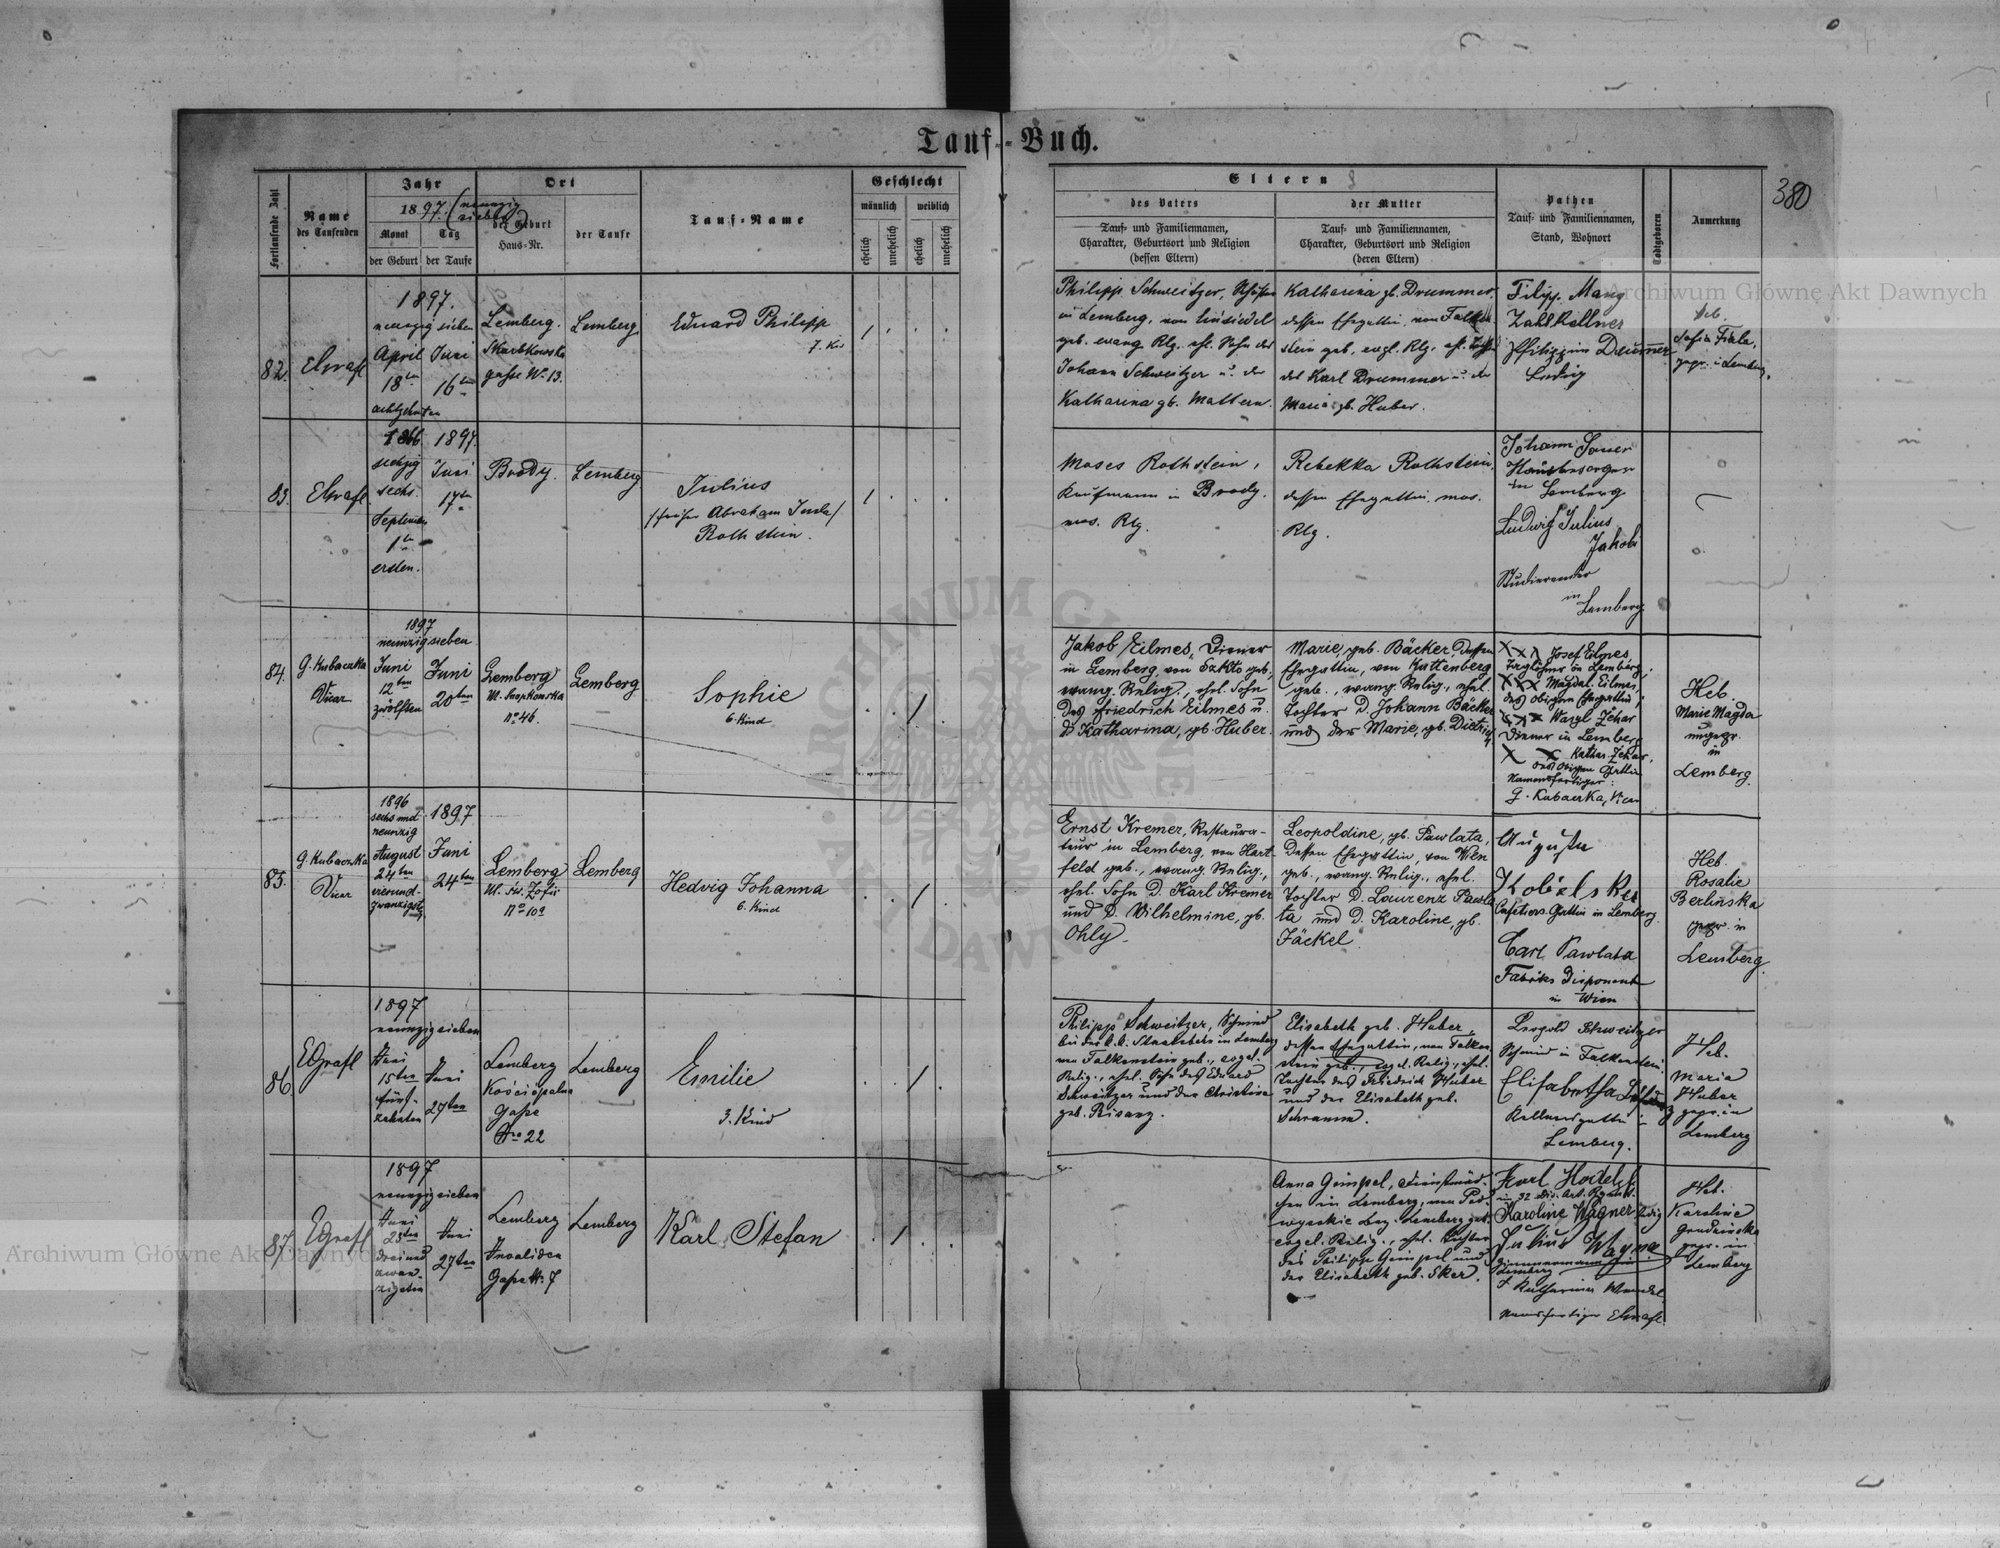 Tauf-Buch.
380
Fortlaufende Zahl
Name
des Taufenden
Jahr
1897. (neunzig
sieben)
Monat
Tag
der Geburt
der Taufe
Ort
der Geburt
Haus-Nr.
der Taufe
Tauf-Name
Geschlecht
männlich
weiblich
ehelich
unehelich
ehelich
unehelich
Eltern
des Vaters
Tauf- und Familiennamen,
Charakter, Geburtsort und Religion
(dessen Eltern)
der Mutter
Tauf- und Familiennamen,
Charakter, Geburtsort und Religion
(deren Eltern)
Pathen
Tauf- und Familiennamen,
Stand, Wohnort
Todtgeboren
Anmerkung
82.
EGrafl
1897.
neunzig sieben
April
18ten
achtzehnten
Juni
16ten
Lemberg.
Skarbkowska
gasse No 13.
Lemberg
Eduard Philipp
7. Kind
Philipp Schweitzer,
in Lemberg, von Einsiedel
geb. evang. Rlg. ehl. Sohn des
Johann Schweitzer u. der
Katharina gb. Mattern.
Katharina gb. Drummer,
dessen Ehegattin, von Falken
stein geb. evgl. Rlg. ehl. Tochter
des Karl Drummer u. der
Maria gb. Huber.
Filipp Mang
Zahlkellner
Philippine Drummer
Ledig
Heb.
Sofia Fiala,
gepr. i. Lemberg.
83.
EGrafl
1866
sechzig
sechs.
September
1ten
ersten.
1897.
Juni
17ten
Brody.
Lemberg
Julius
/früher Abraham Juda/
Rothstein.
Moses Rothstein,
Kaufmann in Brody,
mos. Rlg.
Rebekka Rothstein,
dessen Ehegattin, mos.
Rlg.
Johann Sauer
Hausbesorger
in Lemberg
Ludwig Julius
Jakobi
Studierender
in Lemberg
84.
G. Kubaczka
Vicar
1897
neunzigsieben
Juni
12ten
zwölften
Juni
20ten
Lemberg
Ul. Snopkowska
No 46.
Lemberg
Sophie
6. Kind
Jakob Eilmes, Diener
in Lemberg, von Szkło geb.,
evang. Relig., ehel. Sohn
des Friedrich Eilmes u.
d. Katharina, gb. Huber.
Marie, geb. Bäcker, Dessen
Ehegattin, von Kattenberg
geb., evang. Relig., ehel.
Tochter d. Johann Bäcker
und der Marie, gb. Dietrich
XXX Josef Eilmes,
Taglöhner in Lemberg,
XXX Magdal. Eilmes,
des obigen Ehegattin,
XXX Wasyl Żehar
Diener in Lemberg
XX Kathar. Żehar,
des obigen Gattin
Namensfertiger
G. Kubaczka, Vicar
Heb.
Marie Magda
ungepr.
in
Lemberg.
85.
G. Kubaczka
Vicar
1896
sechs und
neunzig
August
24ten
vierund-
zwanzigst
1897
Juni
24ten
Lemberg
Ul. Św. Zofii
No 10a
Lemberg
Hedwig Johanna
6. Kind
Ernst Kremer, Restaura-
teur in Lemberg, von Hart-
feld geb., evang. Relig.,
ehel. Sohn d. Karl Kremer
und d. Wilhelmine, gb.
Ohly.
Leopoldine, gb. Pawlata,
Dessen Ehegattin, von Wien
geb., evang. Relig., ehel.
Tochter d. Laurenz Pawla
ta und d. Karoline, gb.
Jäckel.
Auguste
Cafetiers Gattin in Lemberg.
Carl Pawlata
Fabriks Disponent
in Wien
Heb.
Rosalie
Berlińska
gepr. in
Lemberg.
86
EGrafl
1897
neunzigsieben
Juni
15ten
fünf-
zehnten
Juni
27ten
Lemberg
Kościopalna
Gasse
No 22
Lemberg
Emilie
3. Kind
Philipp Schweitzer, Schmied
bei der k.k. Staatsbahn in Lemberg
von Falkenstein geb., evgel.
Relig., ehel. Sohn des Eduard
Schweitzer und der Christine
geb.
Elisabeth geb. Huber,
dessen Ehegattin, von Falken
stein geb., evgel. Relig., ehel.
Tochter des Friedrich Huber
und der Elisabeth geb.
Schramm.
Leopold Schweitzer
Schmied in Falkenstein.
Elisabetha
Kellnersgattin in
Lemberg.
Heb.
Maria
Huber
gepr. in
Lemberg
87.
EGrafl
1897
neunzigsieben
Juni
23ten
dreiund
zwan-
zigsten
Juni
27ten
Lemberg
Invaliden
Gasse N. 7
Lemberg
Karl Stefan
Anna Gimpel, Dienstmäd-
chen in Lemberg, von
Bez. Lemberg geb.
evgel. Relig., ehel. Tochter
des Philipp Gimpel und
der Elisabeth geb.
Karl
Karoline Wagner ledig
Julius Wagner
Zimmermann
Lemberg
† Katharina
Namensfertiger EGrafl.
Heb.
Karoline
gepr. in
Lemberg
Archiwum Główne Akt Dawnych
Archiwum Główne Akt Dawnych